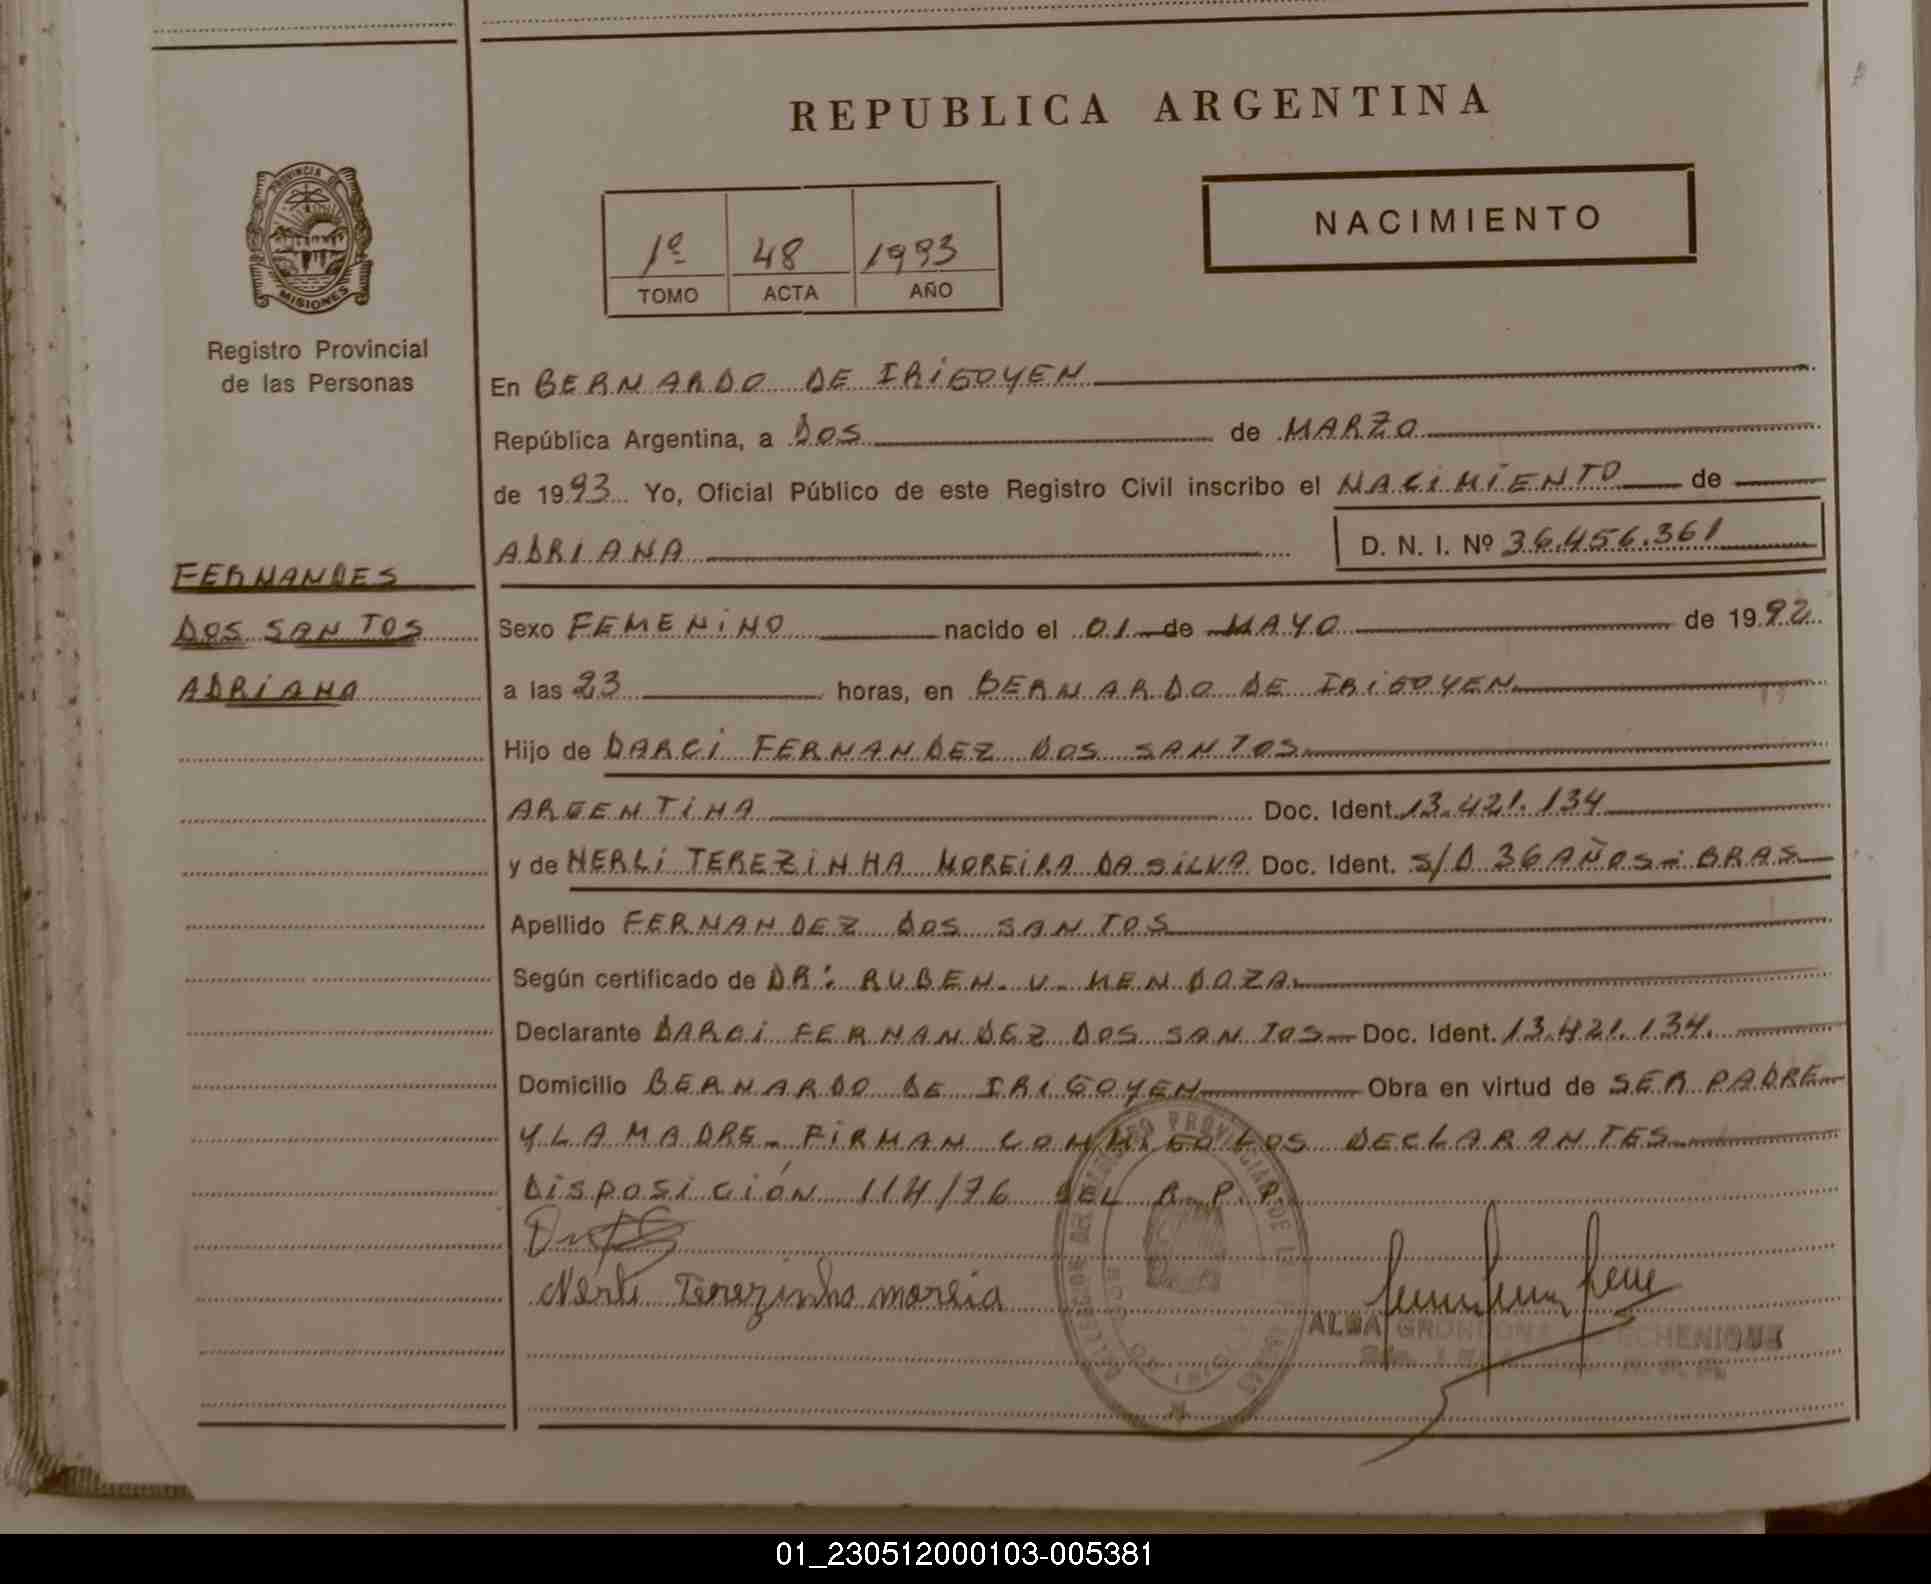 REPUBLICA ARGENTINA
PROVINCIA DE
MISIONES
Registro Provincial
de las Personas
1º 48 1993
TOMO ACTA AÑO
NACIMIENTO
En BERNARDO DE IRIGOYEN
República Argentina, a DOS de MARZO
de 1993 Yo, Oficial Público de este Registro Civil inscribo el NACIMIENTO de
ADRIANA D. N. I. Nº 36.456.361
FERNANDES
DOS SANTOS
ADRIANA
Sexo FEMENINO nacido el 01 de MAYO de 1992
a las 23 horas, en BERNARDO DE IRIGOYEN
Hijo de DARCI FERNANDEZ DOS SANTOS
ARGENTINA Doc. Ident. 13.421.134
y de NERLI TEREZINHA MOREIRA DA SILVA Doc. Ident. S/D 36 AÑOS - BRAS
Apellido FERNANDEZ DOS SANTOS
Según certificado de DR: RUBEN. V. MENDOZA
Declarante DARCI FERNANDEZ DOS SANTOS Doc. Ident. 13.421.134.
Domicilio BERNARDO DE IRIGOYEN Obra en virtud de SER PADRE
Y LA MADRE - FIRMAN CONMIGO LOS DECLARANTES
DISPOSICIÓN 114/76 DEL R.P.P.
Nerli Terezinha moreia
ALBA GRONDONA ECHENIQUE
01_230512000103-005381